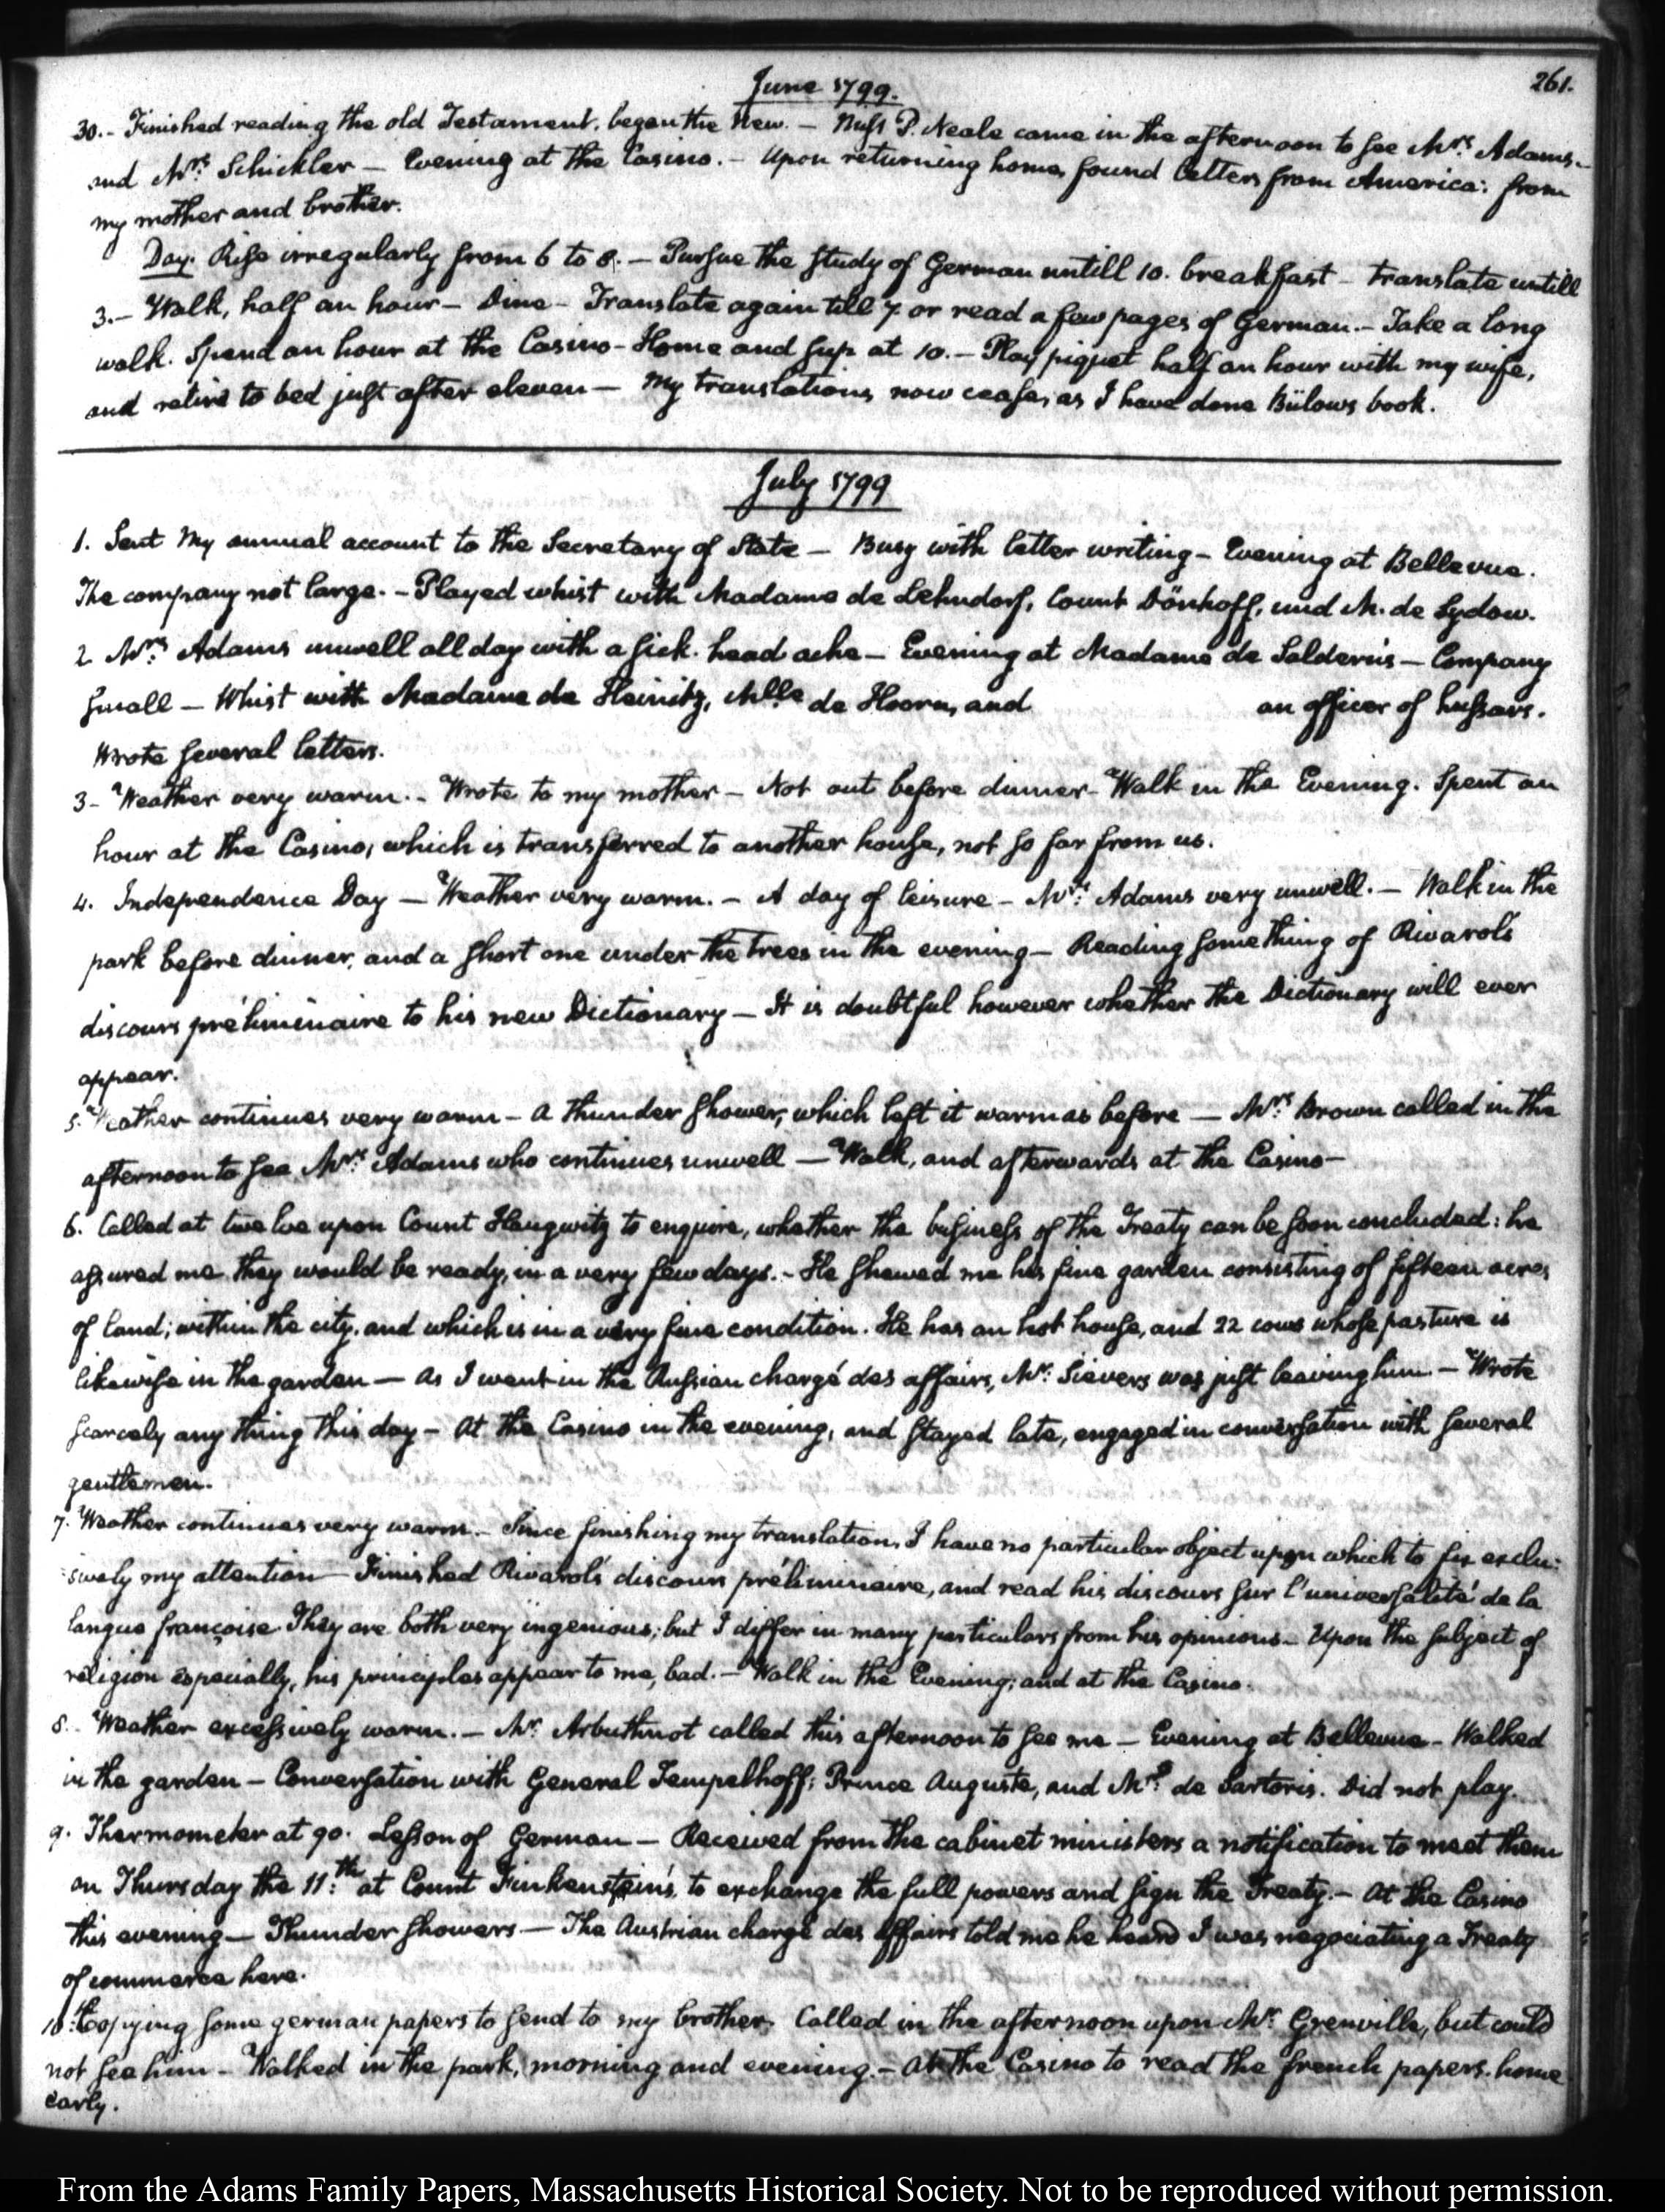 June 1799.
261.
30.- Finished reading the old Testament. began the New. - Miss P. Neale came in the afternoon to see Mrs: Adams.-
and Mrs: Schickler - Evening at the Casino. - Upon returning home, found letters from America: from
my mother and brother.
Day. Rise irregularly from 6 to 8. - Pursue the study of German untill 10. breakfast - translate untill
3.- Walk, half an hour - Dine - Translate again till 7. or read a few pages of German. - Take a long
walk. Spend an hour at the Casino - Home and sup at 10. - Play piquet half an hour with my wife,
and retire to bed just after eleven - My translations now cease, as I have done Bülows book.
July 1799
1. Sent my annual account to the Secretary of State - Busy with letter writing - Evening at Bellevue.
The company not large. - Played whist with Madame de Lehndorf, Count Dönhoff, und M. de Sydow.
2 Mrs: Adams unwell all day with a sick. head ache - Evening at Madame de Soldern's - Company
small - Whist with Madame de Heinitz, Mlle de Hoorn, and an officer of hussars.
Wrote several letters.
3- Weather very warm. - Wrote to my mother - Not out before dinner - Walk in the Evening. Spent an
hour at the Casino, which is transferred to another house, not so far from us.
4. Independence Day - Weather very warm. - A day of leisure - Mrs: Adams very unwell. - Walk in the
park before dinner, and a short one under the trees in the evening - Reading something of Rivarol's
discours préliminaire to his new Dictionary - It is doubtful however whether the Dictionary will ever
appear.
5. Weather continues very warm - a thunder shower, which left it warm as before - Mrs: Brown called in the
afternoon to see Mrs: Adams who continues unwell - Walk, and afterwards at the Casino -
6. Called at twelve upon Count Haugwitz to enquire, whether the business of the Treaty can be soon concluded: he
assured me they would be ready, in a very few days. - He shewed me his fine garden consisting of fifteen acres
of land; within the city, and which is in a very fine condition. He has an hot house, and 22 cows whose pasture is
likewise in the garden - As I went in the Russian chargé des affairs, Mr: Sievers was just leaving him - Wrote
scarcely any thing this day - At the Casino in the evening, and stayed late, engaged in conversation with several
gentlemen.
7. Weather continues very warm. - Since finishing my translation, I have no particular object upon which to fix exclu:
:sively my attention - Finished Rivarol's discours préliminaire, and read his discours sur l'universalité de la
langue françoise. They are both very ingenious; but I differ in many particulars from his opinions - Upon the subject of
religion especially, his principles appear to me, bad. - Walk in the Evening; and at the Casino.
8. Weather excessively warm. - Mr: Arbuthnot called this afternoon to see me - Evening at Bellevue - Walked
in the garden - Conversation with General Tempelhoff; Prince Auguste, and Mr: de Sartoris. Did not play.
9. Thermometer at 90. Lesson of German - Received from the cabinet ministers a notification to meet them
on Thursday the 11:th at Count Finkenstein's, to exchange the full powers and sign the Treaty. - At the Casino
this evening - Thunder showers - The Austrian chargé des affairs told me he heard I was negociating a Treaty
of commerce here.
10: Copying some german papers to send to my brother. Called in the afternoon upon Mr: Grenville, but could
not see him - Walked in the park, morning and evening. - At the Casino to read the french papers. home
early.
From the Adams Family Papers, Massachusetts Historical Society. Not to be reproduced without permission.